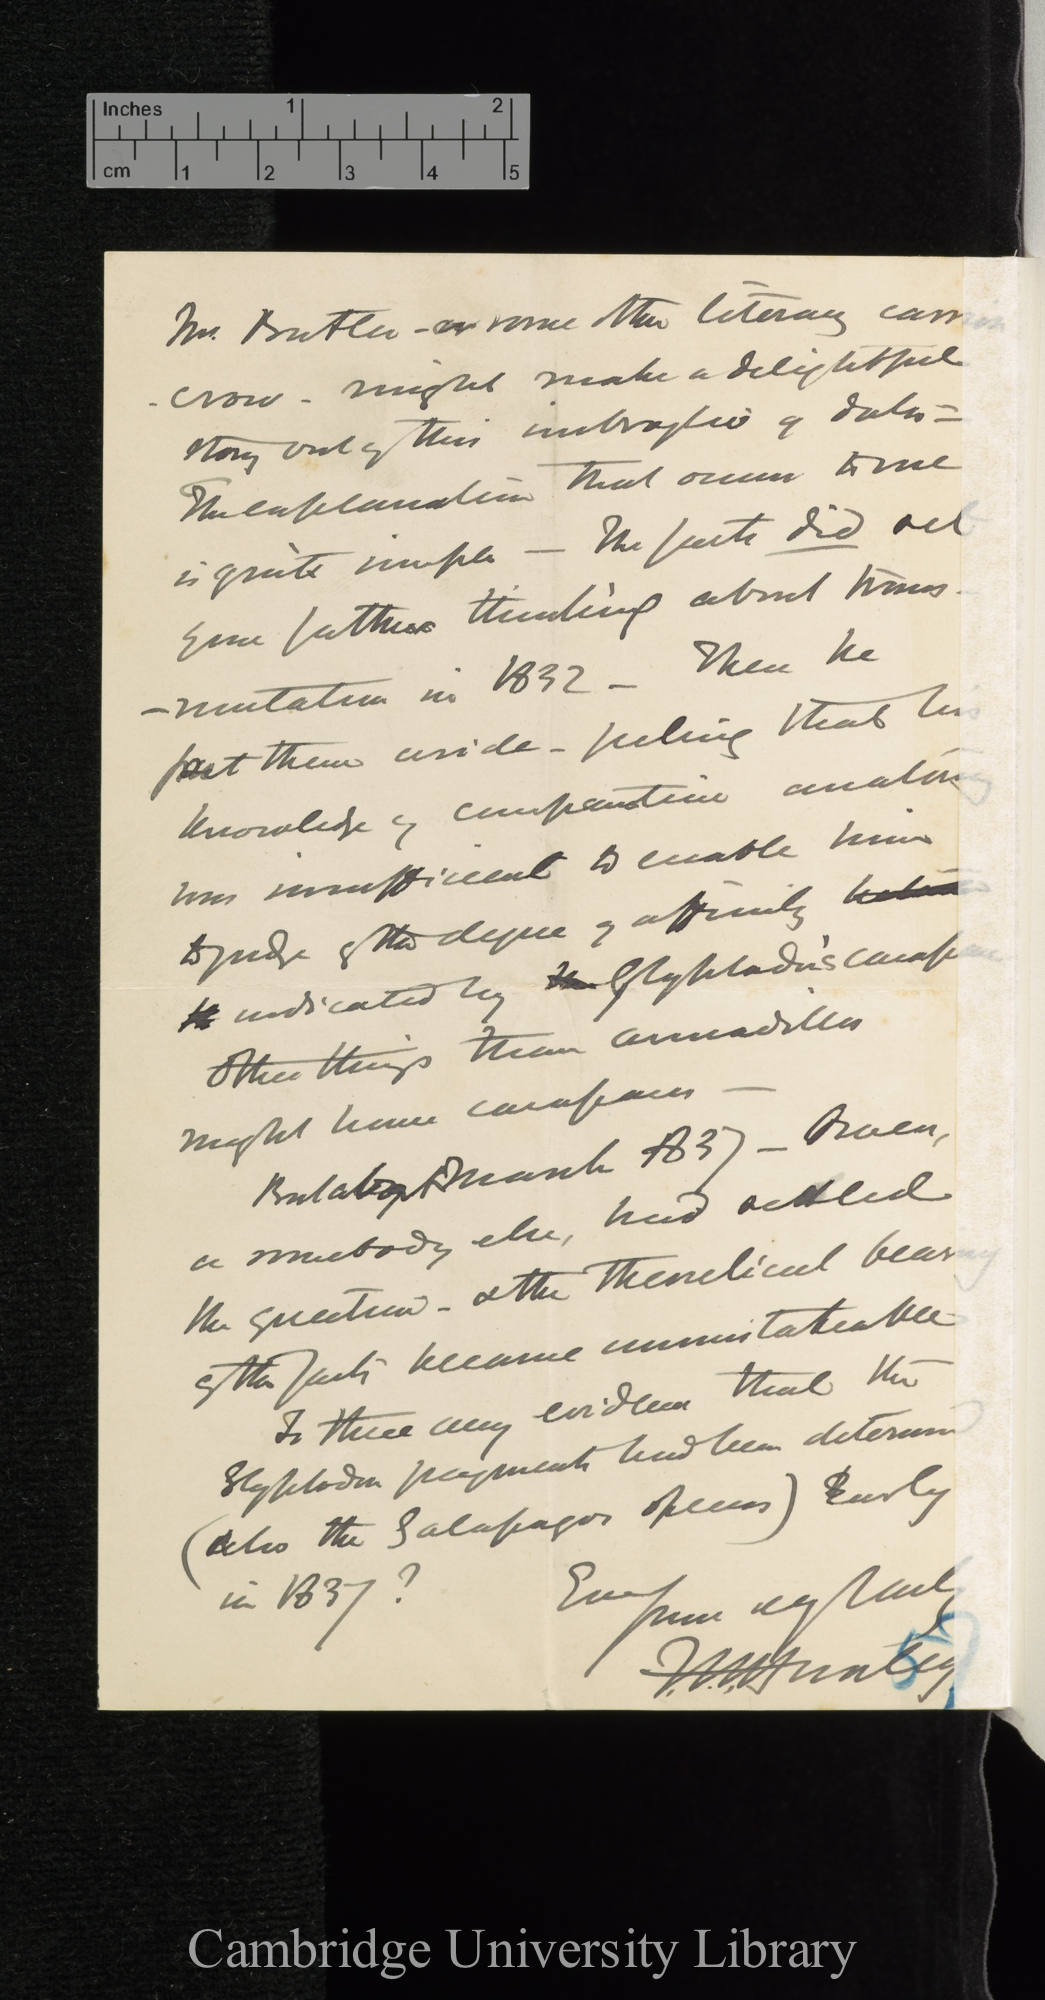 Inches 1 2
cm 1 2 3 4 5
Mr. Butler - or some other literary carrion
-crow - might make a delightful
story out of this imbroglio of dates =
The explanation that occurs to me
is quite simple — The facts did set
your father thinking about trans-
-mutation in 1832 - Then he
put them aside - feeling that his
knowledge of comparative anatomy
was insufficient to enable him
to judge of the degree of affinity
indicated by the Glyptodon's carapace
Other things than armadillos
might have carapaces —
But about March 1837 - Owen,
or somebody else, had settled
the question - & the theoretical bearing
of the facts became unmistakeable
Is there any evidence that the
Glyptodon fragments had been determined
(also the Galapagos species) Early
in 1837?
Ever yours very truly
T.H. Huxley
57
Cambridge University Library